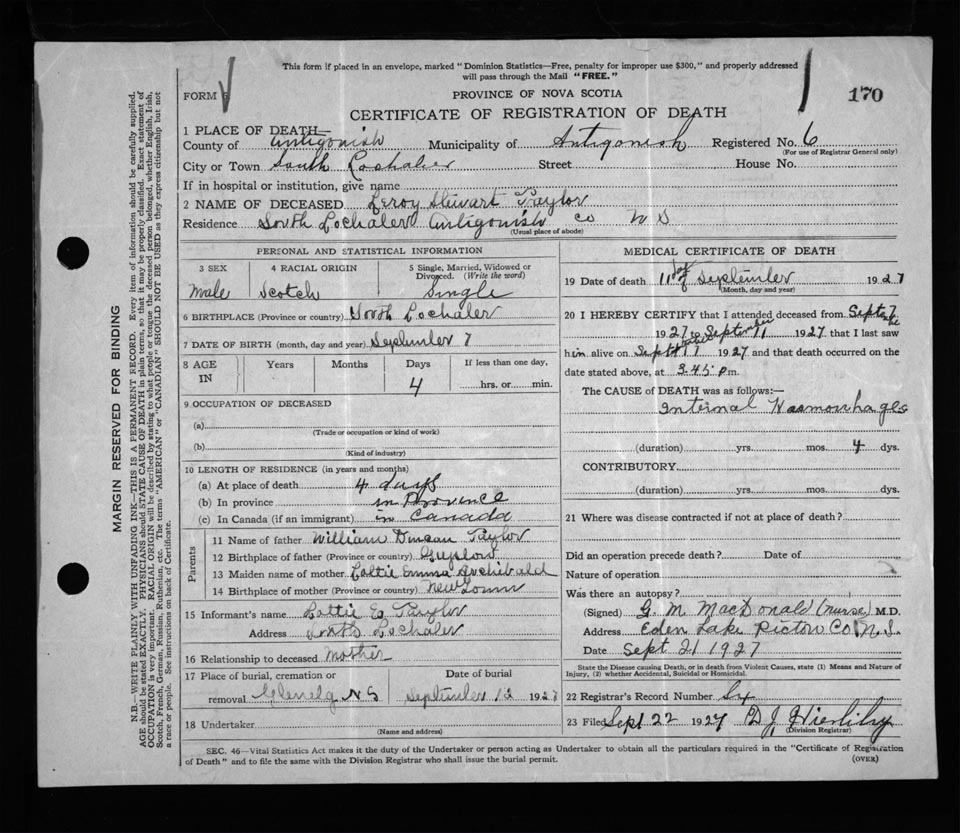 This form if placed in an envelope, marked "Dominion Statistics—Free, penalty for improper use $300," and properly addressed
will pass through the Mail "FREE."
FORM
PROVINCE OF NOVA SCOTIA
170
CERTIFICATE OF REGISTRATION OF DEATH
1 PLACE OF DEATH—
County of Antigonish Municipality of Antigonish Registered No. 6
(For use of Registrar General only)
City or Town South Lochaber Street House No.
If in hospital or institution, give name
2 NAME OF DECEASED Leroy Stuwart Taylor
Residence South Lochaber Antigonish Co N S
(Usual place of abode)
PERSONAL AND STATISTICAL INFORMATION
3 SEX 4 RACIAL ORIGIN 5 Single, Married, Widowed or
Divorced. (Write the word)
Male Scotch Single
6 BIRTHPLACE (Province or country) South Lochaber
7 DATE OF BIRTH (month, day and year) September 7
8 AGE Years Months Days If less than one day,
IN 4 hrs. or min.
9 OCCUPATION OF DECEASED
(a)
(Trade or occupation or kind of work)
(b)
(Kind of industry)
10 LENGTH OF RESIDENCE (in years and months)
(a) At place of death 4 days
(b) In province in Provence
(c) In Canada (if an immigrant) in Canada
Parents
11 Name of father William Duncan Taylor
12 Birthplace of father (Province or country)
13 Maiden name of mother Lottie Emma Archibald
14 Birthplace of mother (Province or country) New
15 Informant's name Lottie E Taylor
Address Lochaber
16 Relationship to deceased mother
17 Place of burial, cremation or Date of burial
removal Glenelg N S September 12 1927
18 Undertaker
(Name and address)
MEDICAL CERTIFICATE OF DEATH
19 Date of death 11 day of September 1927
(Month, day and year)
20 I HEREBY CERTIFY that I attended deceased from Sept 7
1927 to September 11 1927 that I last saw
him alive on Sept 1927 and that death occurred on the
date stated above, at 3.45 p m.
The CAUSE of DEATH was as follows:—
Internal Haemorrhages
(duration) yrs. mos. 4 dys.
CONTRIBUTORY
(duration) yrs. mos. dys.
21 Where was disease contracted if not at place of death?
Did an operation precede death? Date of
Nature of operation
Was there an autopsy?
(Signed) G. M. MacDonald (nurse) M.D.
Address Eden Lake Pictou Co. N.S.
Date Sept 21 1927
State the Disease causing Death, or in death from Violent Causes, state (1) Means and Nature of
Injury, (2) whether Accidental, Suicidal or Homicidal.
22 Registrar's Record Number Six
23 Filed Sept 22 1927 D J
(Division Registrar)
SEC. 46—Vital Statistics Act makes it the duty of the Undertaker or person acting as Undertaker to obtain all the particulars required in the "Certificate of Registration
of Death" and to file the same with the Division Registrar who shall issue the burial permit.
(OVER)
MARGIN RESERVED FOR BINDING
N.B.—WRITE PLAINLY WITH UNFADING INK—THIS IS A PERMANENT RECORD. Every item of information should be carefully supplied.
AGE should be stated EXACTLY. PHYSICIANS should STATE CAUSE OF DEATH in plain terms, so that it may be properly classified. Exact statement of
OCCUPATION is very important. RACIAL ORIGIN will be described by stating to what people or tongue the deceased person belonged, whether English, Irish,
Scotch, French, German, Russian, Ruthenian, etc. The terms "AMERICAN" or "CANADIAN" SHOULD NOT BE USED as they express citizenship but not
a race or people. See instructions on back of Certificate.